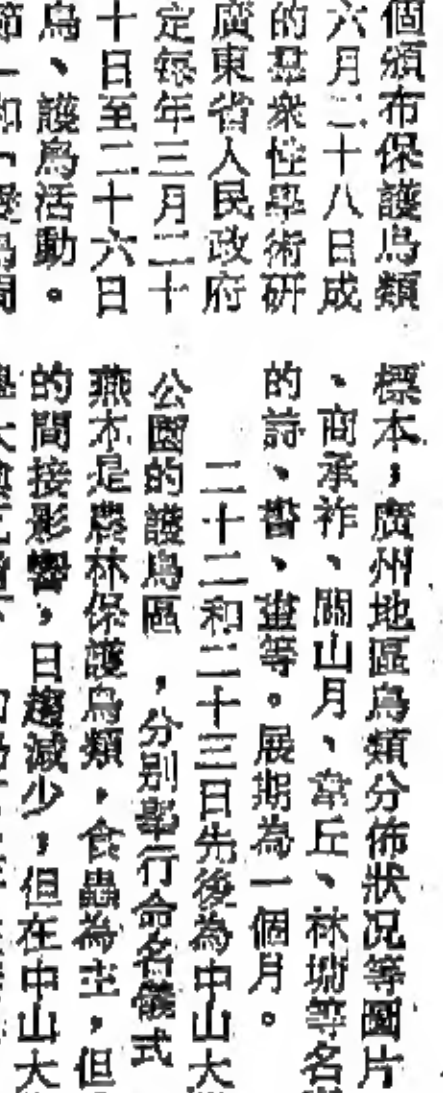 個頒布保護鳥類
六月二十八日成
的羣衆性學術研
廣東省人民政府
定每年三月二十
十日至二十六日
鳥、護鳥活動。
標本，廣州地區鳥類分佈狀況等圖片
、商承祚、關山月、韋丘、林墉等名
的詩、書、畫等。展期為一個月。
二十二和二十三日先後為中山大
公園的護鳥區，分別舉行命名儀式
燕不是農林保護鳥類，食蟲為主，但
的間接影響，日趨減少，但在中山大